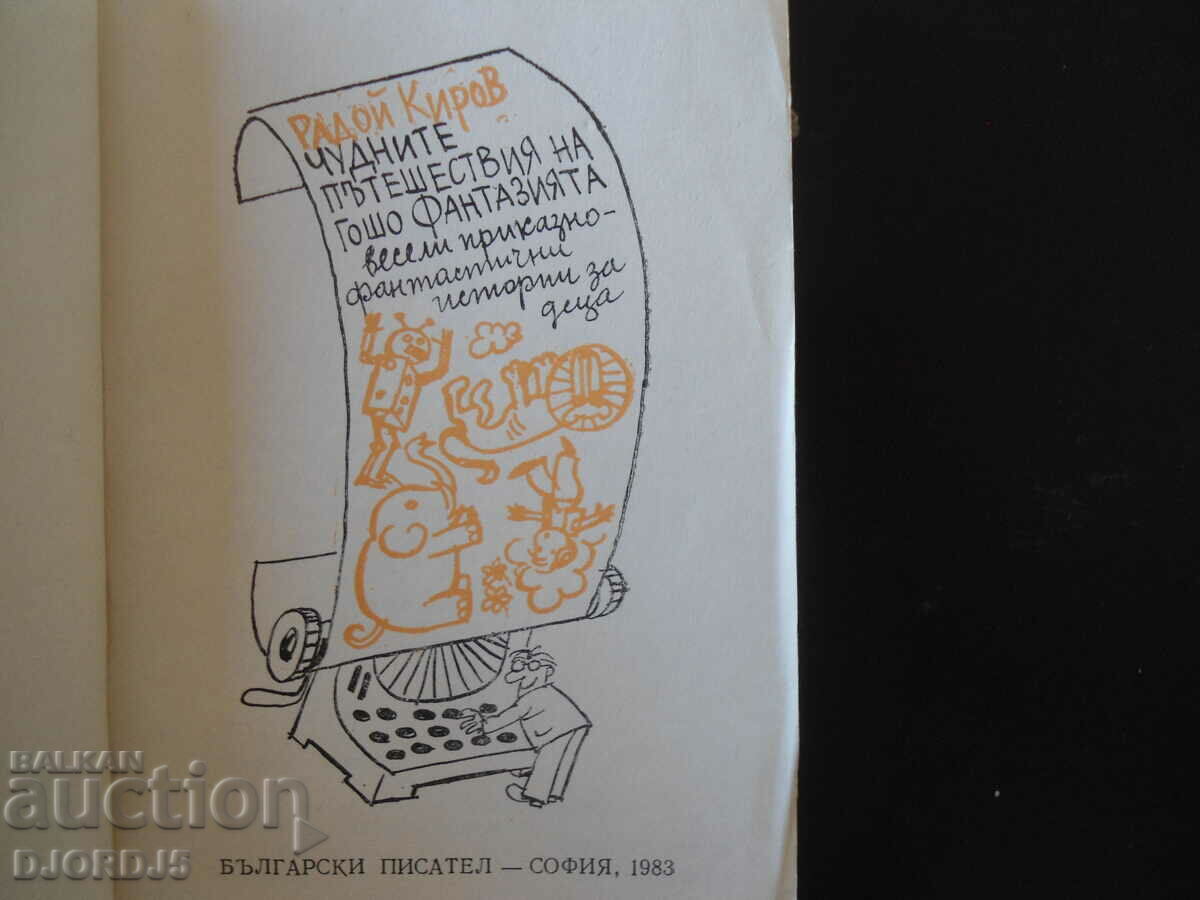 Радой Киров
ЧУДНИТЕ
ПЪТЕШЕСТВИЯ НА
ГОШО ФАНТАЗИЯТА
весели приказно-
фантастични
истории за
деца
БЪЛГАРСКИ ПИСАТЕЛ — СОФИЯ, 1983
BALKAN
auction
DJORDJ5